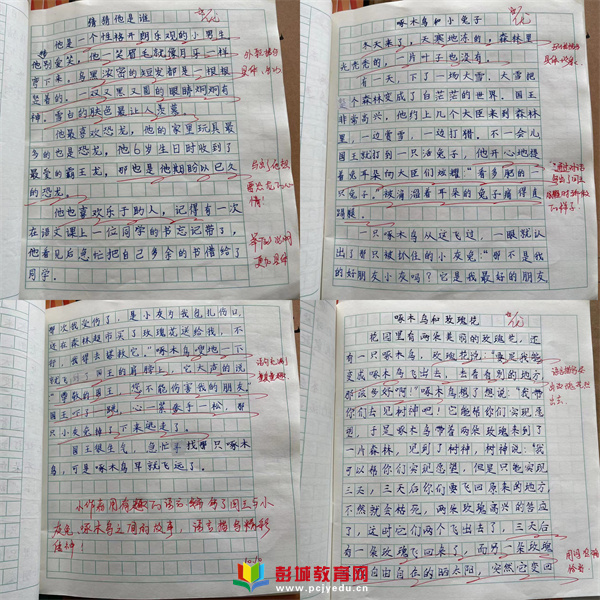 猜猜他是谁
他是一个性格开朗乐观的小男生
他别爱笑，他一笑眉毛就像月牙一样
弯下来，乌黑浓密的短发都是一根根
竖着的。一双又黑又圆的眼睛炯炯有
神。雪白的肤色最让人羡慕。
他最喜欢恐龙，他的家里玩具最
多的也是恐龙，他6岁生日时收到了
最爱的霸王龙，那也是他期盼以已久
的恐龙。
他也喜欢乐于助人，记得有一次
在语文课上一位同学的书忘记带了，
他看见后急忙把自己多余的书借给了
同学。
啄木鸟和小兔子
冬天来了，天寒地冻的，森林里
光秃秃的，一片叶子也没有。
有一天，下了一场大雪，大雪把
整个森林变成了白茫茫的世界。国王
非常高兴，他约上几个大臣来到森林
里，一边赏雪，一边打猎。不一会儿
国王就打到一只活兔子，他开心地提
着兔耳朵向大臣们炫耀："看多肥的一
只兔子。"被揪着耳朵的兔子痛得直
蹬腿。
一只啄木鸟从这飞过，一眼就认
出了那只被抓住的小灰兔"那不是我
的好朋友小灰吗？它是我最好的朋友
那次我受伤了，是小灰为我包扎伤口，
还在森林超市买了玫瑰花送给我，不
行，我得去拯救它。"啄木鸟嗖地一下
就飞到了国王的肩膀上，它大声的说
"尊敬的国王，您不能伤害我的朋友。"
国王吓了一跳，心一紧张手一松，那
只小灰兔掉了下来逃走了。
国王很生气，急忙寻找那只啄木
鸟，可是啄木鸟早就飞远了。
小作者用有趣的语言编写了国王与小
灰兔、啄木鸟之间的故事，语言描写精彩
传神！
啄木鸟和玫瑰花
花园里有两朵美丽的玫瑰花，还
有一只啄木鸟，玫瑰花说："要是我能
变成啄木鸟飞出去，去看看别的地方
那该多好啊！"啄木鸟想了想说："我带
你们去见树神吧！它能帮你们实现愿
望，于是啄木鸟带着两朵玫瑰来到了
一片森林，见到了树神，树神说："我
可以帮你们实现愿望，但是只能实现
三天，三天后你们要飞回原来的地方，
不然就会枯死，两朵玫瑰高兴的答应
了，这时它们两个飞出去了，三天后
有一朵玫瑰飞回来了，而另一朵玫瑰
自由自在的晒太阳，突然它变回
彭城教育网
www.pcjyedu.cn